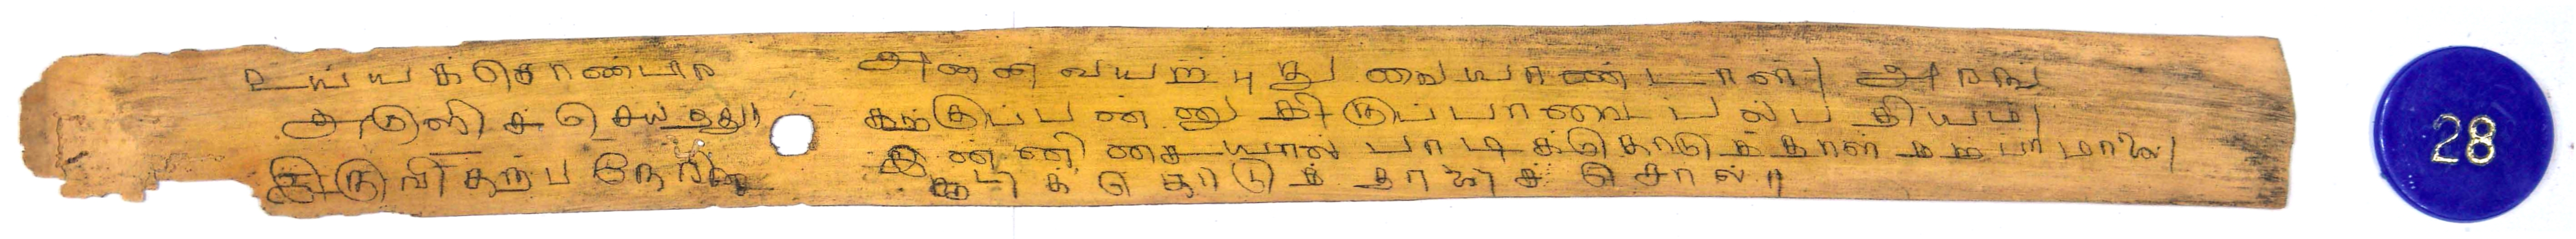 உய்யக்கொண்டார்
அருளிச்செய்தது॥
இருவிகற்ப நேரிசை
அன்ன வயற்புதுவையாண்டாள்| அரங்
கற்குப்பன்னு திருப்பாவை பல்பதியம்|
இன்னிசையால் பாடிக்கொடுத்தாள் நற்பாமாலை|
சூடிக்கொடுத்தாளைச் சொல்॥
28